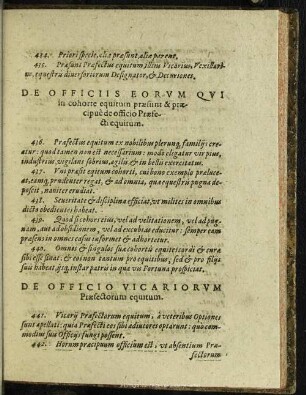 434. Priori specie, aliæ præsunt, aliæ parent.
435. Præsunt Præfectus equitum, illius Vicarius, Vexillari-
us, equestriũ diversoriorum Designator, & Decuriones.
DE OFFICIIS EORVM QVI
in cohorte equitum præsunt & præ-
cipuè de officio Præfe-
cti equitum.
436. Præfectus equitum ex nobilibus plerunq; familijs cre-
atur: quod tamen non est necessarium: modò eligatur vir pius,
industrius, vigilans sobrius, agilis & in bellis exercitatus.
437. Vni præsit equitum cohorti, cui bono exemplo prælu-
ceat, eamq; prudenter regat, & ad omnia, quæ equestris pugna de-
poscit, naviter erudiat.
438. Severitate & disciplina efficiat, ut milites in omnibus
dicto obedientes habeat.
439. Quod si cohors eius, vel ad velitationem, vel ad pug-
nam, aut ad obsidionem, vel ad excubias educitur: semper eam
præsens in omnes casus informet & adhortetur.
440. Omnes & singulos suæ cohortis equites cordi & curæ
sibi esse sinat: & eos non tantum pro equitibus, sed & pro filijs
suis habeat, ijsq; instar patris in qua vis Fortuna prospiciat.
DE OFFICIO VICARIORVM
Præfectorum equitum.
441. Vicarij Præfectorum equitum, à veteribus Optiones
sunt apellati: quia Præfecti eos sibi adiutores optarunt: quò com-
modius suo Officijs fungi possent.
442. Horum præcipuum officium est, ut absentium Præ-
fectorum